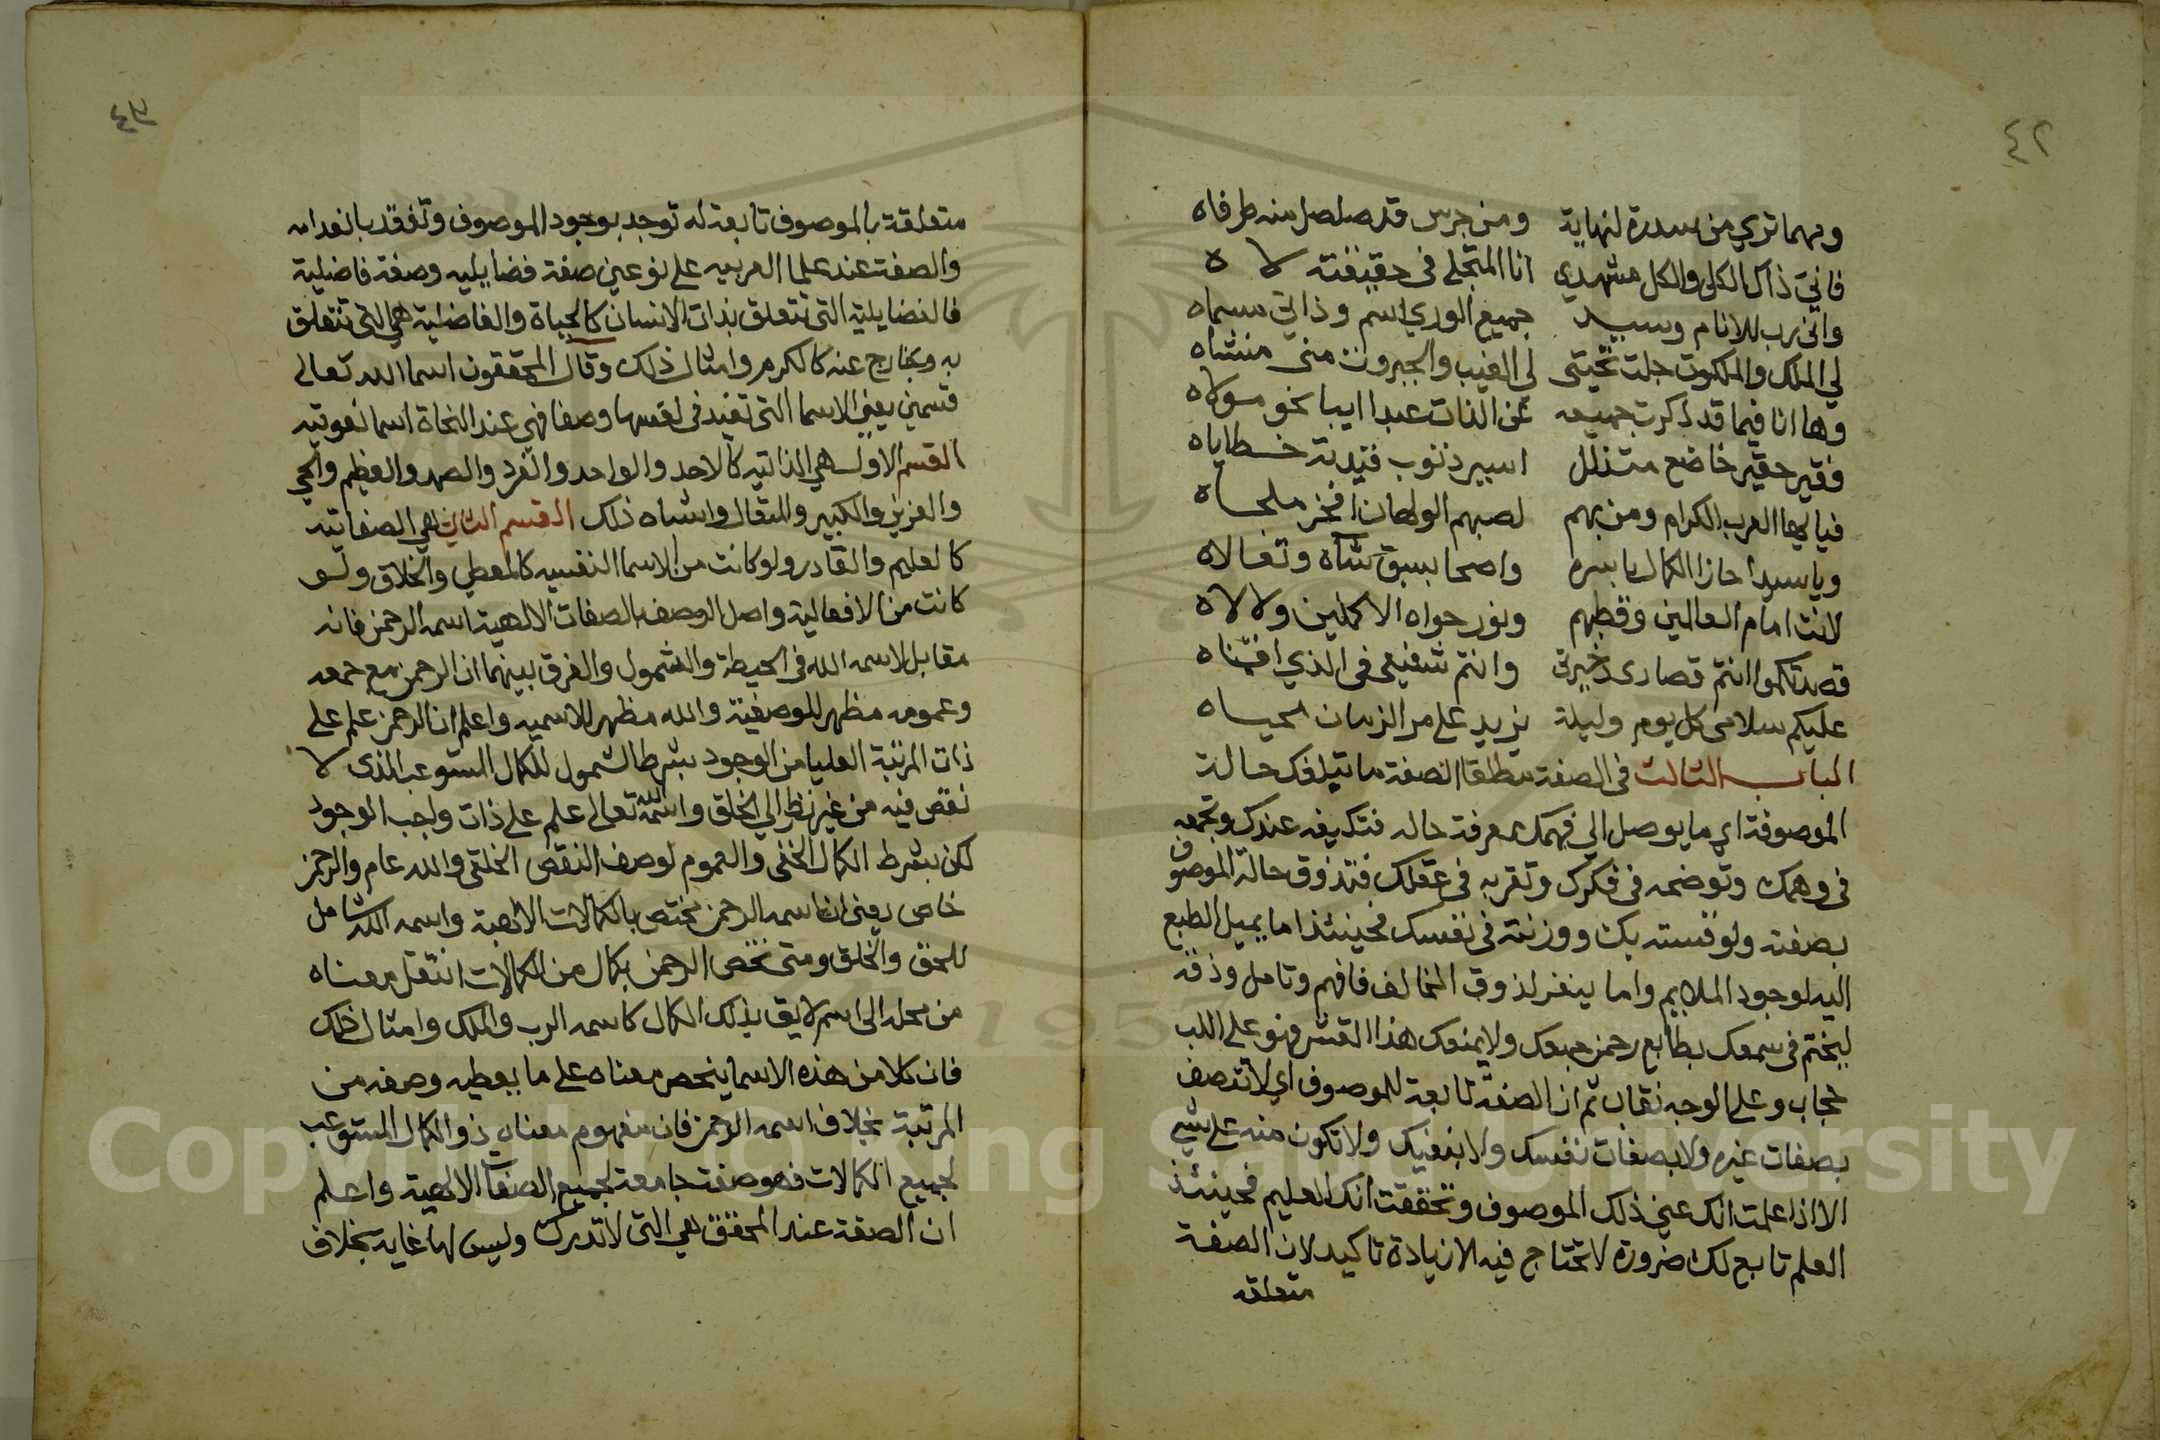 ٤٢
ومهما تري من سدرة لنهاية ومن جرس قد صلصل منه طرفاه
فاني ذاك الكل والكل مشهدي انا المتجلي في حقيقته لا ه
واني رب للانام وسيد جميع الوري اسم وذاتي مسماه
لي الملك والملكوت حلت تحيتي لي الغيب والجبروت مني منشاه
وها انا فيما قد ذكرت جميعه عن الذات عبدا ايبا نحو مولاه
فقير حقير خاضع متذلل اسير ذنوب قيدته خطاياه
فيا ايها العرب الكرام ومن بهم لصبهم الولهان افخر ملجاه
ويا سيدا حاز الكمال باسره واضحا بسبق شاه وتعالاه
لانت امام العالمين وقطبهم ونور حواه الاكملين ولالاه
قصدتكموا انتم قصاري ذخيرتي وانتم شفيعي في الذي اتمناه
عليكم سلامي كل يوم وليلة تزيد علي مر الزمان محياه
الباب الثالث في الصفة مطلقا الصفة ما تبلغك حالة
الموصوفة اي ما يوصل الي فهمك معرفة حاله فتكيفه عندك وتجمعه
في وهمك وتوضحه في فكرك وتقربه في عقلك فتذوق حالة الموصوف
بصفته ولو قسته بك ووزنته في نفسك فحينئذ اما يميل الطبع
اليه لوجود الملايم واما ينفر لذوق المخالف فافهم وتامل وذقه
ليختم في سمعك بطابع رحمن جمعك ولا يمنعك هذا القشر فهو علي اللب
حجاب وعلي الوجه نقاب ثم ان الصفة تابعة للموصوف اي لا تتصف
بصفات غيره ولا بصفات نفسك ولا بنفيك ولا تكون منه علي شي
الا اذا علمت انك عين ذلك الموصوف وتحققت انك العليم فحينئذ
العلم تابع لك ضرورة لا تحتاج فيه لازيادة تاكيد لان الصفة
متعلقه
٤٣
متعلقة بالموصوف تابعة له توجد بوجود الموصوف وتفقد بانعدامه
والصفة عند علما العربيه علي نوعين صفة فضايليه وصفة فاضلية
فالفضايلية التي تتعلق بذات الانسان كالحياة والفاضلية هي التي تتعلق
به وبخارج عنه كالكرم وامثال ذلك وقال المحققون اسما الله تعالي
قسمين يعني الاسما التي تفيد في نفسها وصفا فهي عند النحاة اسما نعوتيه
القسم الاول هي الذاتيه كالاحد والواحد والفرد والصمد والعظيم والحي
والعزيز والكبير والمتعال واشباه ذلك القسم الثاني هي الصفاتيه
كالعليم والقادر ولو كانت من الاسما النفسيه كالمعطي والخلاق ولو
كانت من الافعالية واصل الوصف الصفات الالهية اسمه الرحمن فانه
مقابل لاسمه الله في الحيطة والشمول والفرق بينهما ان الرحمن مع جمعه
وعمومه مظهر للوصفية والله مظهر للاسميه واعلم ان الرحمن علم علي
ذات المرتبة العليا من الوجود بشرط الشمول للكمال المستوعب الذي لا
نقص فيه من غير نظر الي الخلق واسمه الله تعالي علم علي ذات واجب الوجود
لكن بشرط الكمال الحقي والعموم لوصف النقص الخلقي والله عام والرحمن
خاص يعني ان اسمه الرحمن مختص بالكمالات الالهية واسمه الله شامل
للحق والخلق ومتي تخصص الرحمن بكمال من الكمالات انتقل معناه
من محله الي اسم لايق بذلك الكمال كاسمه الرب والملك وامثال ذلك
فان كلا من هذه الاسما ينحصر معناه علي ما يعطيه وصفه من
المرتبة بخلاف اسمه الرحمن فان مفهوم معناه ذو الكمال المستوعب
لجميع الكمالات فهو صفة جامعة لجميع الصفات الالهية واعلم
ان الصفة عند المحقق هي التي لا تدرك وليس لها غاية بخلاف
1957
Copyright © King Saud University